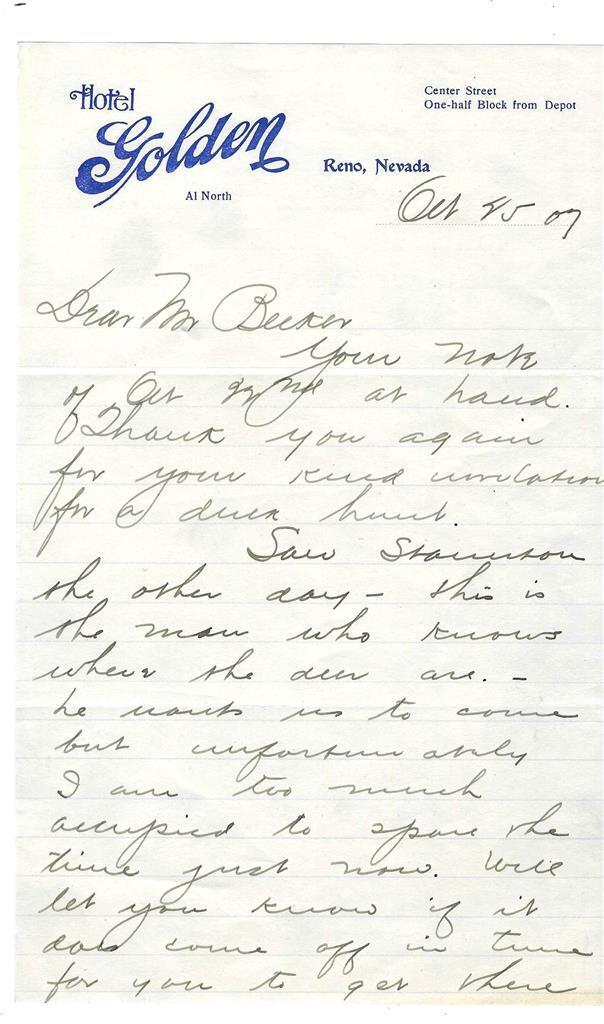 Hotel
Golden
Al North
Center Street
One-half Block from Depot
Reno, Nevada
Oct 25 07
Dear Mr Becker
Your note
of Oct 22nd at hand.
Thank you again
for your kind invitation
for a duck hunt.
Saw
the other day – this is
the man who knows
where the deer are. –
he wants us to come
but unfortunately
I am too much
occupied to spare the
time just now. Will
let you know if it
does come off in time
for you to get there